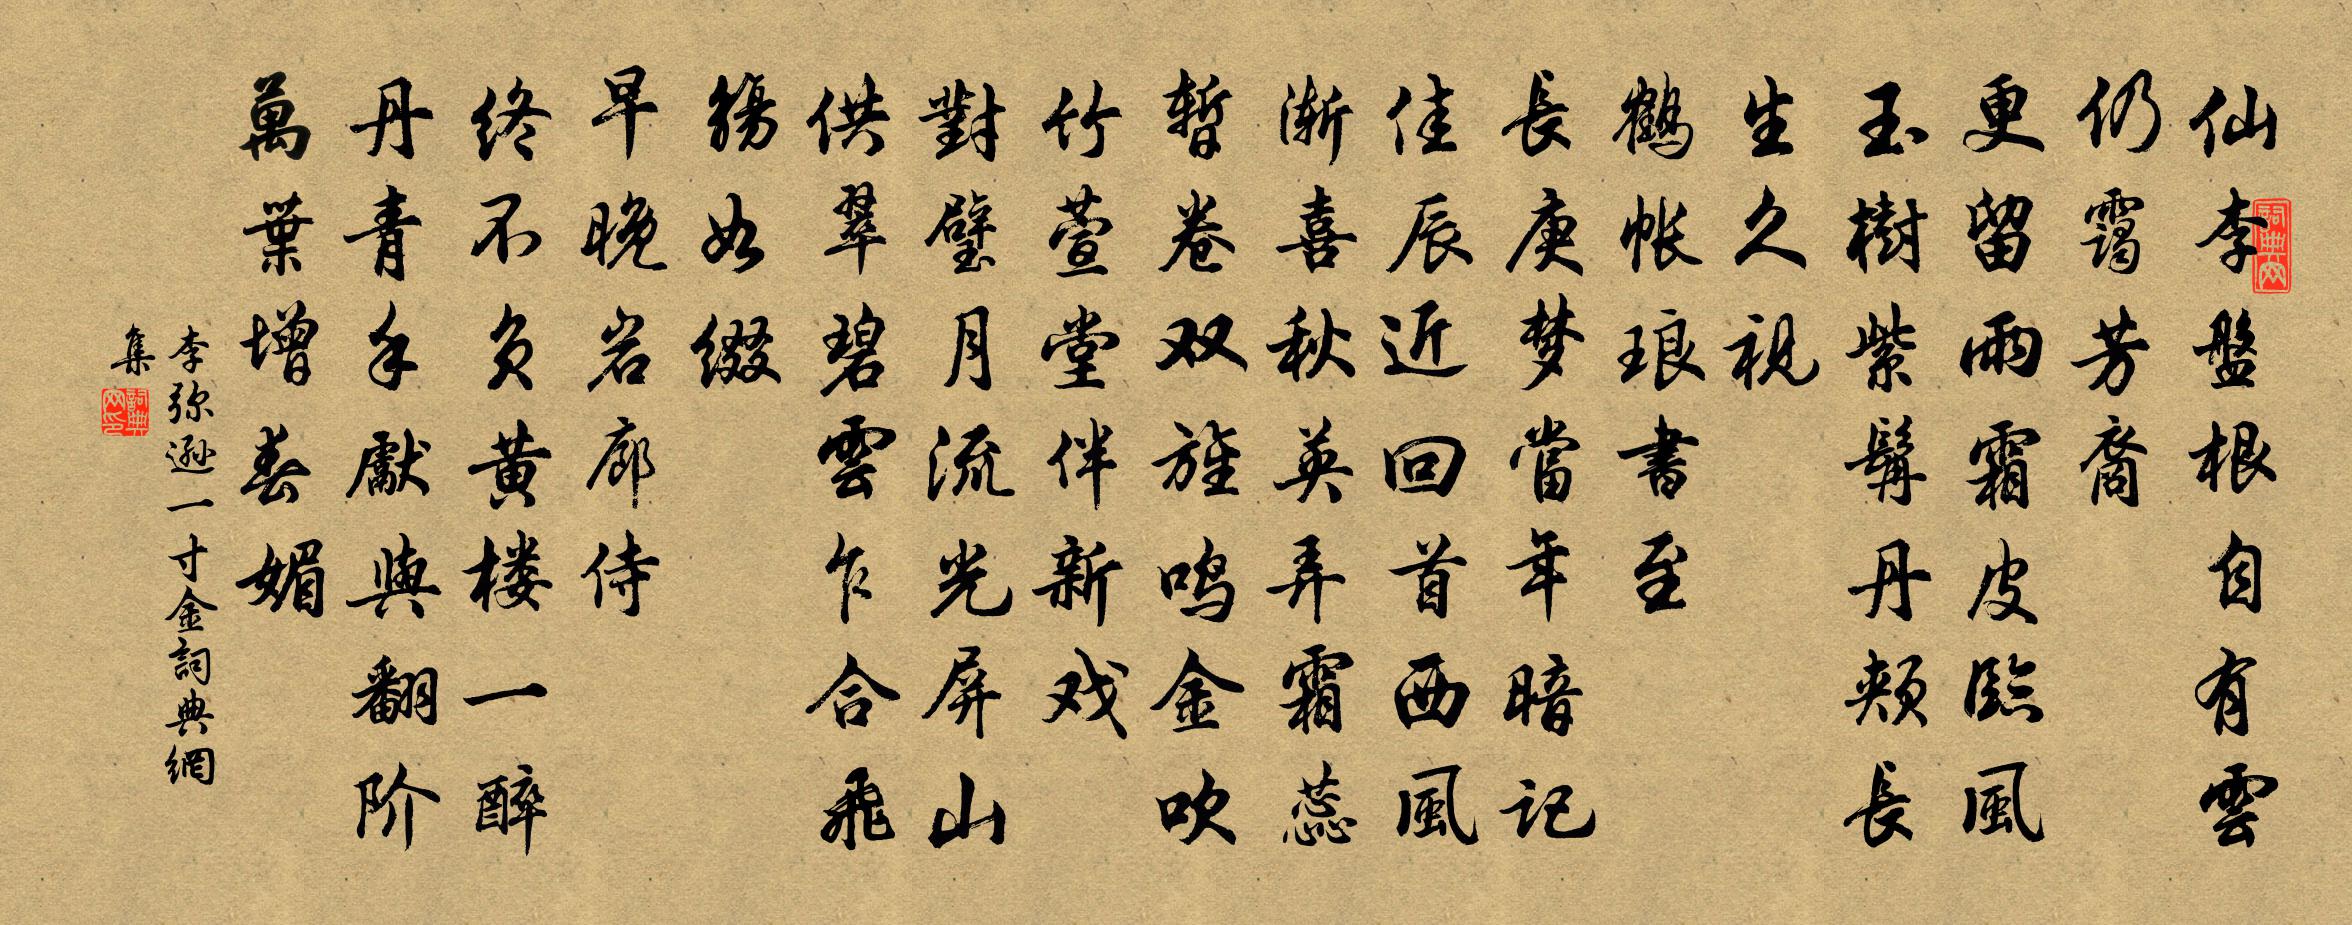 仙李盤根自有雲
仍靄芳裔
更留雨霜皮臨風
玉樹紫髯丹頰長
生久視
鶴帐琅書至
長庚梦當年暗記
佳辰近回首西風
渐喜秋英弄霜蕊
暫卷双旌鸣金吹
竹萱堂伴新戏
對璧月流光屏山
供翠碧雲乍合飛
觴如缀
早晚岩廊侍
终不负黄楼一醉
丹青手獻與翻阶
萬葉增春媚
李弥遜一寸金詞典網
集
詞典网
詞典网印